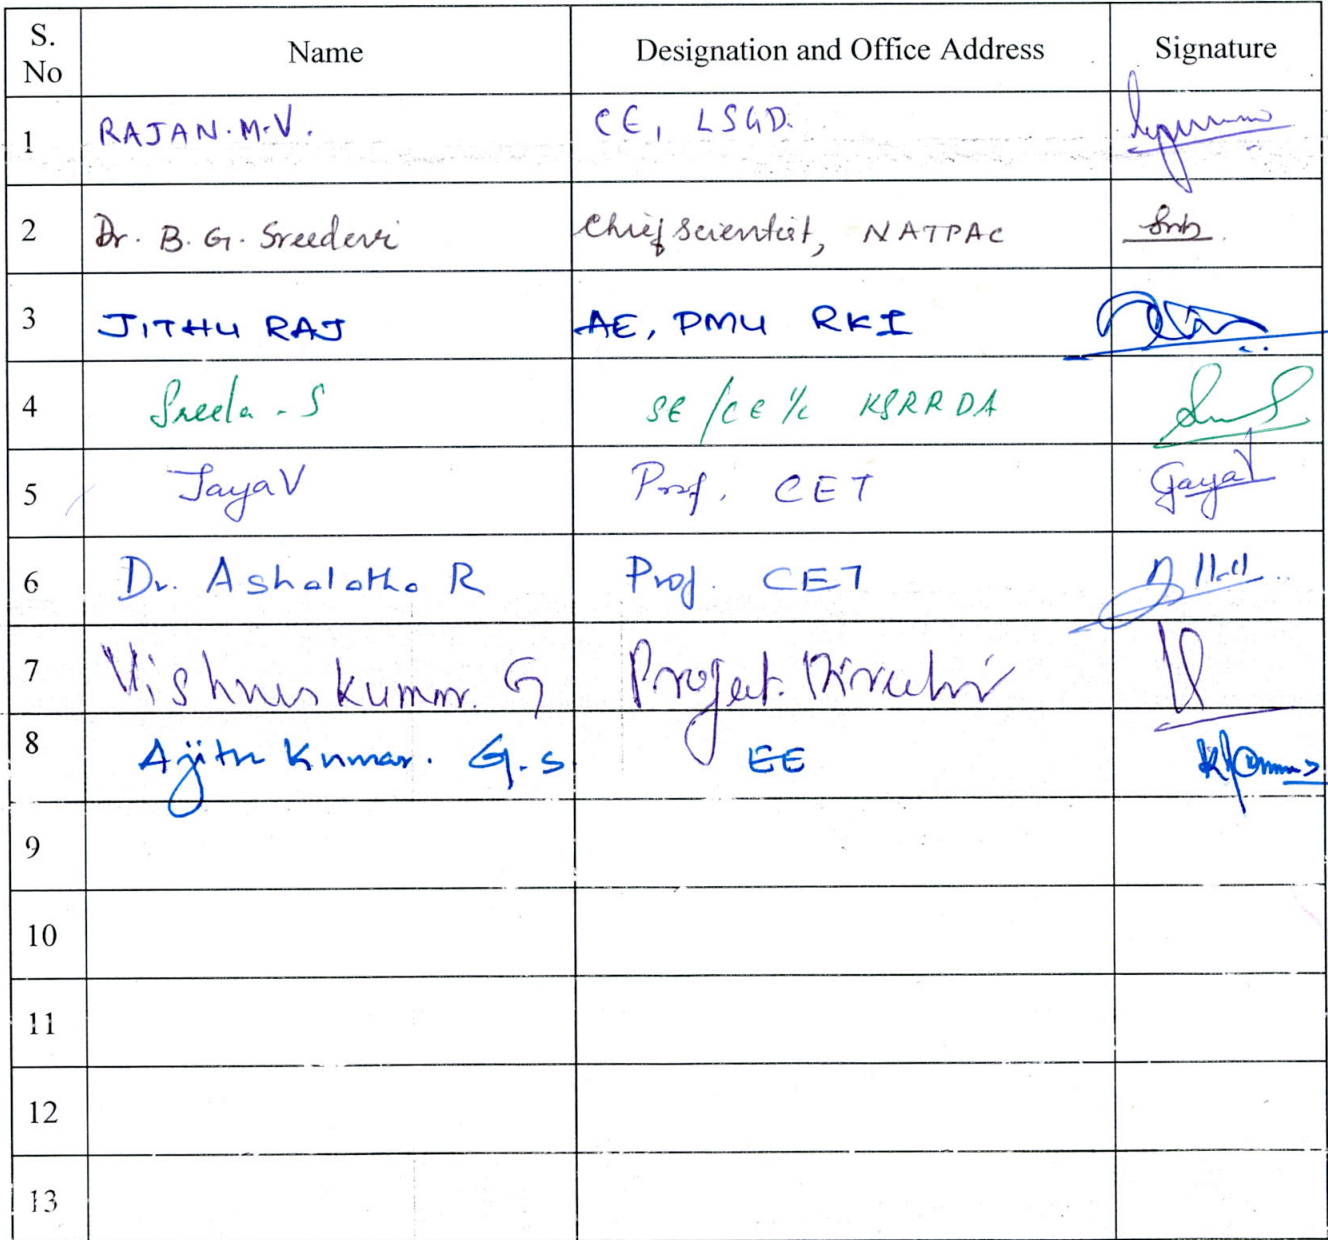 S. No Name Designation and Office Address Signature
1 RAJAN.M.V. CE, LSGD.
2 Dr. B. G. Sreedevi Chief Scientist, NATPAC
3 JITHU RAJ AE, PMU RKI
4 Sreela . S SE/CE I/c KSRRDA
5 Jaya V Prof. CET Jaya V
6 Dr. Ashalatha R Prof. CET
7 Vishnu kumar. G Project Director
8 Ajith Kumar. G.S EE
9
10
11
12
13